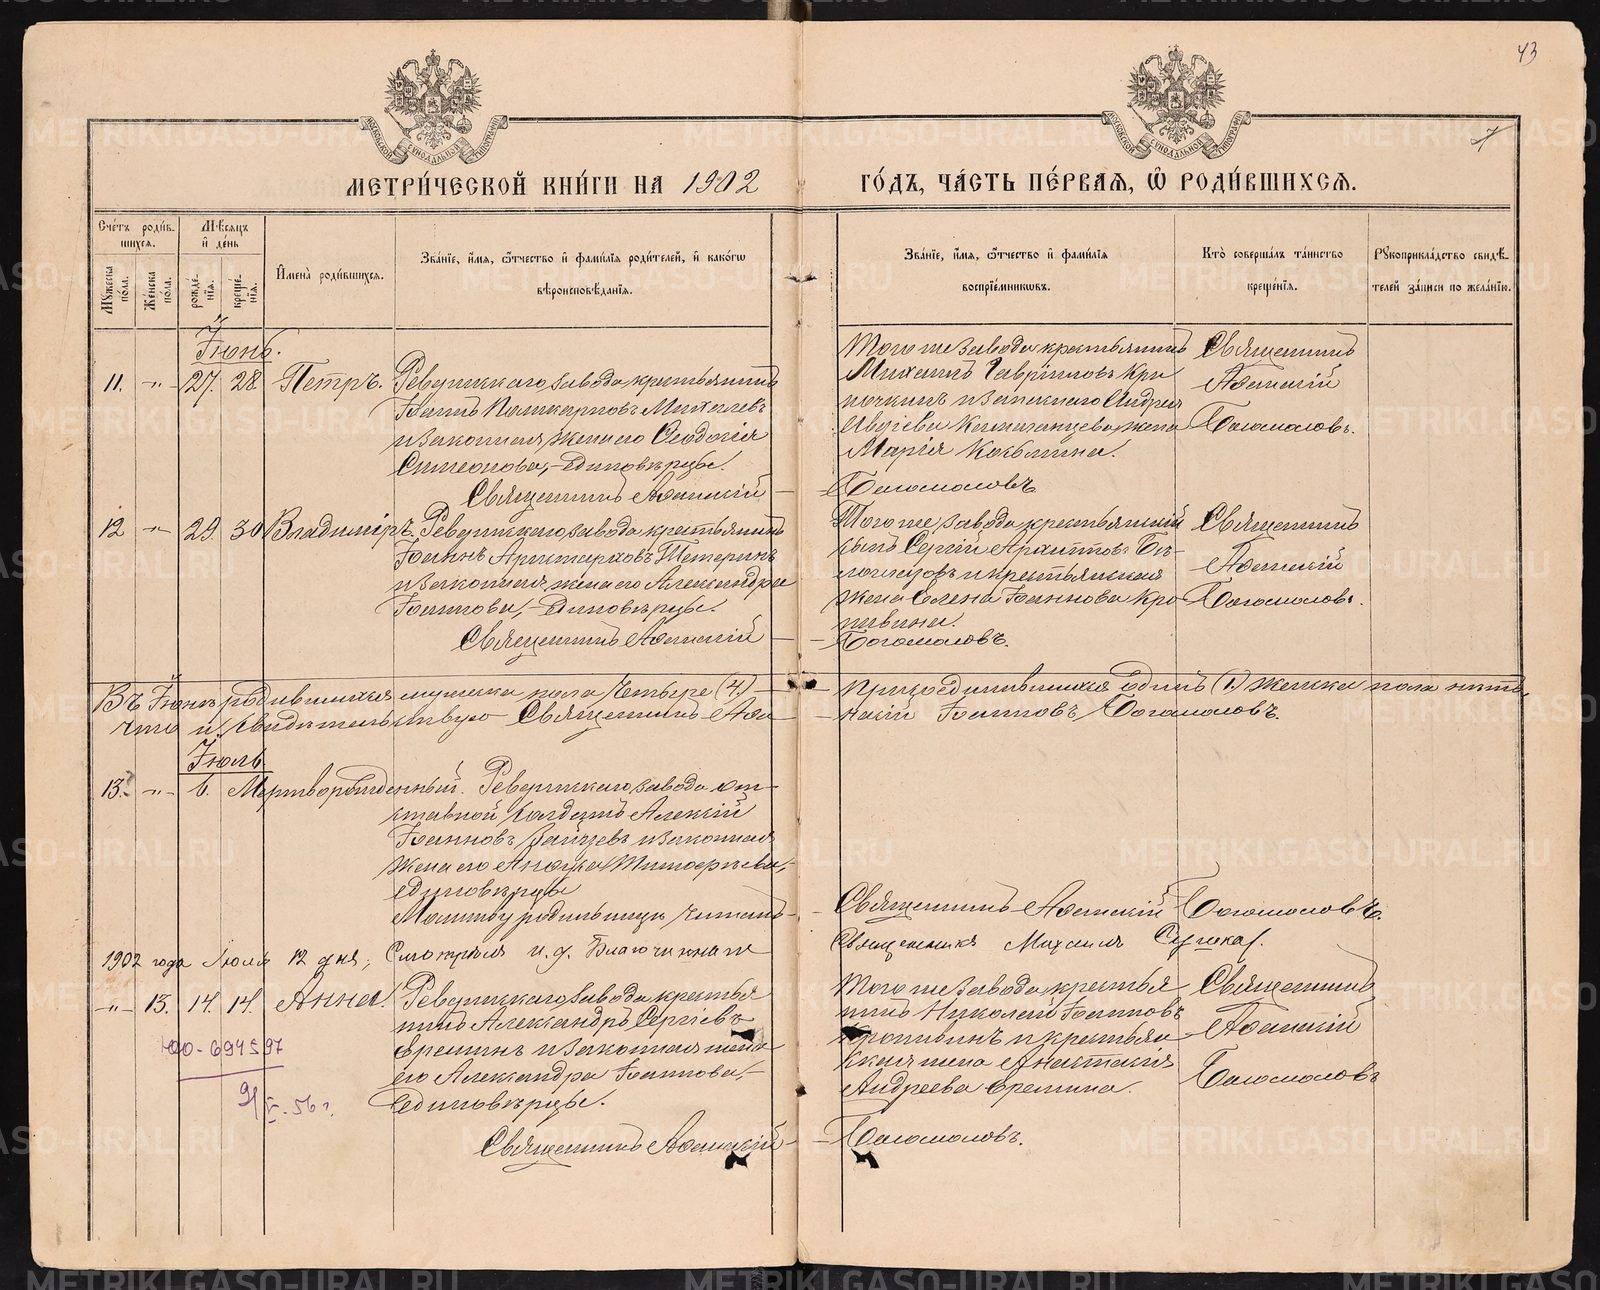 43
7
МОСКОВСКОЙ СѴНОДАЛЬНОЙ ТИПОГРАФІИ
МОСКОВСКОЙ СѴНОДАЛЬНОЙ ТИПОГРАФІИ
МЕТРИ́ЧЕСКОЙ КНИ́ГИ НА 1902
ГО́ДЪ, ЧА́СТЬ ПЕ́РВАѦ, Ѡ҆ РОДИ́ВШИХСѦ.
Сче́тъ роди́в-
шихся.
Му́жеска по́ла.
Же́нска по́ла.
Мѣ́сяцъ
и҆ де́нь
рожде́-
нїя.
креще́-
нїя.
И҆мена̀ роди́вшихся.
Зва́нїе, и҆́мя, ѻ҆́тчество и҆ фами́лїя роди́телей, и҆ како́гѡ
вѣроисповѣ́данїя.
Зва́нїе, и҆́мя, ѻ҆́тчество и҆ фами́лїя
воспрїе́мникѡвъ.
Кто̀ соверша́лъ та́инство
креще́нїя.
Рꙋкоприкла́дство свидѣ́-
телей за́писи по жела́нїю.
Іюнь.
11. -"- 27. 28. Петръ. Ревдинскаго завода крестьянинъ
Іоаннъ Поликарповъ Михалевъ
и законная жена его Ѳеодосія
Симеонова, - единовѣрцы.
Священникъ Аѳанасій
Того же завода крестьянинъ
Михаилъ Гавріиловъ
и запаснаго Андрея
жена
Марія Козьмина.
Богомоловъ
Священникъ
Аѳанасій
Богомоловъ.
12 -"- 29. 30 Владиміръ. Ревдинскаго завода крестьянинъ
Іоаннъ Аристарховъ Шетеринъ
и законная жена его Александра
Іоаннова, - единовѣрцы.
Священникъ Аѳанасій
Того же завода крестьянскій
сынъ Сергій
и крестьянская
жена Елена Іоаннова Кро-
пивина.
Богомоловъ.
Священникъ
Аѳанасій
Богомоловъ.
Въ Іюнѣ родившихся мужска пола четыре (4.)
присоединившихся одинъ (1.) женска пола нѣтъ,
что и свидѣтельствую Священникъ Аѳа-
насій Іоанновъ Богомоловъ.
Іюль
13. -"- 6. Мертворожденный. Ревдинскаго завода от-
ставной солдатъ Алексій
Іоанновъ Зайцевъ и законная
жена его Анѳуса Тимоѳеева,
единовѣрцы
Молитву родильницѣ читалъ
Священникъ Аѳанасій Богомоловъ.
1902 года Іюля 12 дня, Смотрѣлъ и. д. Благочиннаго
Священникъ Михаилъ
-"- 13. 14. 14. Анна. Ревдинскаго завода крестья-
нинъ Александръ Сергіевъ
Еремин и законная жена
его Александра Іоаннова, -
единовѣрцы.
Священникъ Аѳанасій
Того же завода крестья-
нинъ Николай Іоанновъ
Кропивинъ и крестьян-
ская жена Анастасія
Андреева Еремина.
Богомоловъ.
Священникъ
Аѳанасій
Богомоловъ
ЮО-694597
9/V-56г.
METRIKI.GASO-URAL.RU